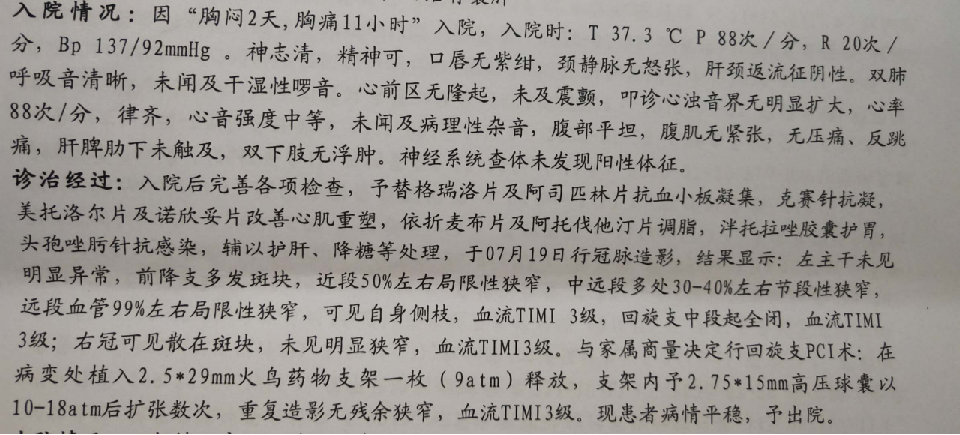 入院情况：因“胸闷2天,胸痛11小时”入院，入院时：T 37.3 ℃ P 88次／分，R 20次／
分，Bp 137/92mmHg 。神志清，精神可，口唇无紫绀，颈静脉无怒张，肝颈返流征阴性。双肺
呼吸音清晰，未闻及干湿性啰音。心前区无隆起，未及震颤，叩诊心浊音界无明显扩大，心率
88次/分，律齐，心音强度中等，未闻及病理性杂音，腹部平坦，腹肌无紧张，无压痛、反跳
痛，肝脾肋下未触及，双下肢无浮肿。神经系统查体未发现阳性体征。
诊治经过：入院后完善各项检查，予替格瑞洛片及阿司匹林片抗血小板凝集，克赛针抗凝，
美托洛尔片及诺欣妥片改善心肌重塑，依折麦布片及阿托伐他汀片调脂，泮托拉唑胶囊护胃，
头孢唑肟针抗感染，辅以护肝、降糖等处理，于07月19日行冠脉造影，结果显示：左主干未见
明显异常，前降支多发斑块，近段50%左右局限性狭窄，中远段多处30-40%左右节段性狭窄，
远段血管99%左右局限性狭窄，可见自身侧枝，血流TIMI 3级，回旋支中段起全闭，血流TIMI
3级；右冠可见散在斑块，未见明显狭窄，血流TIMI3级。与家属商量决定行回旋支PCI术：在
病变处植入2.5*29mm火鸟药物支架一枚（9atm）释放，支架内予2.75*15mm高压球囊以
10-18atm后扩张数次，重复造影无残余狭窄，血流TIMI3级。现患者病情平稳，予出院。